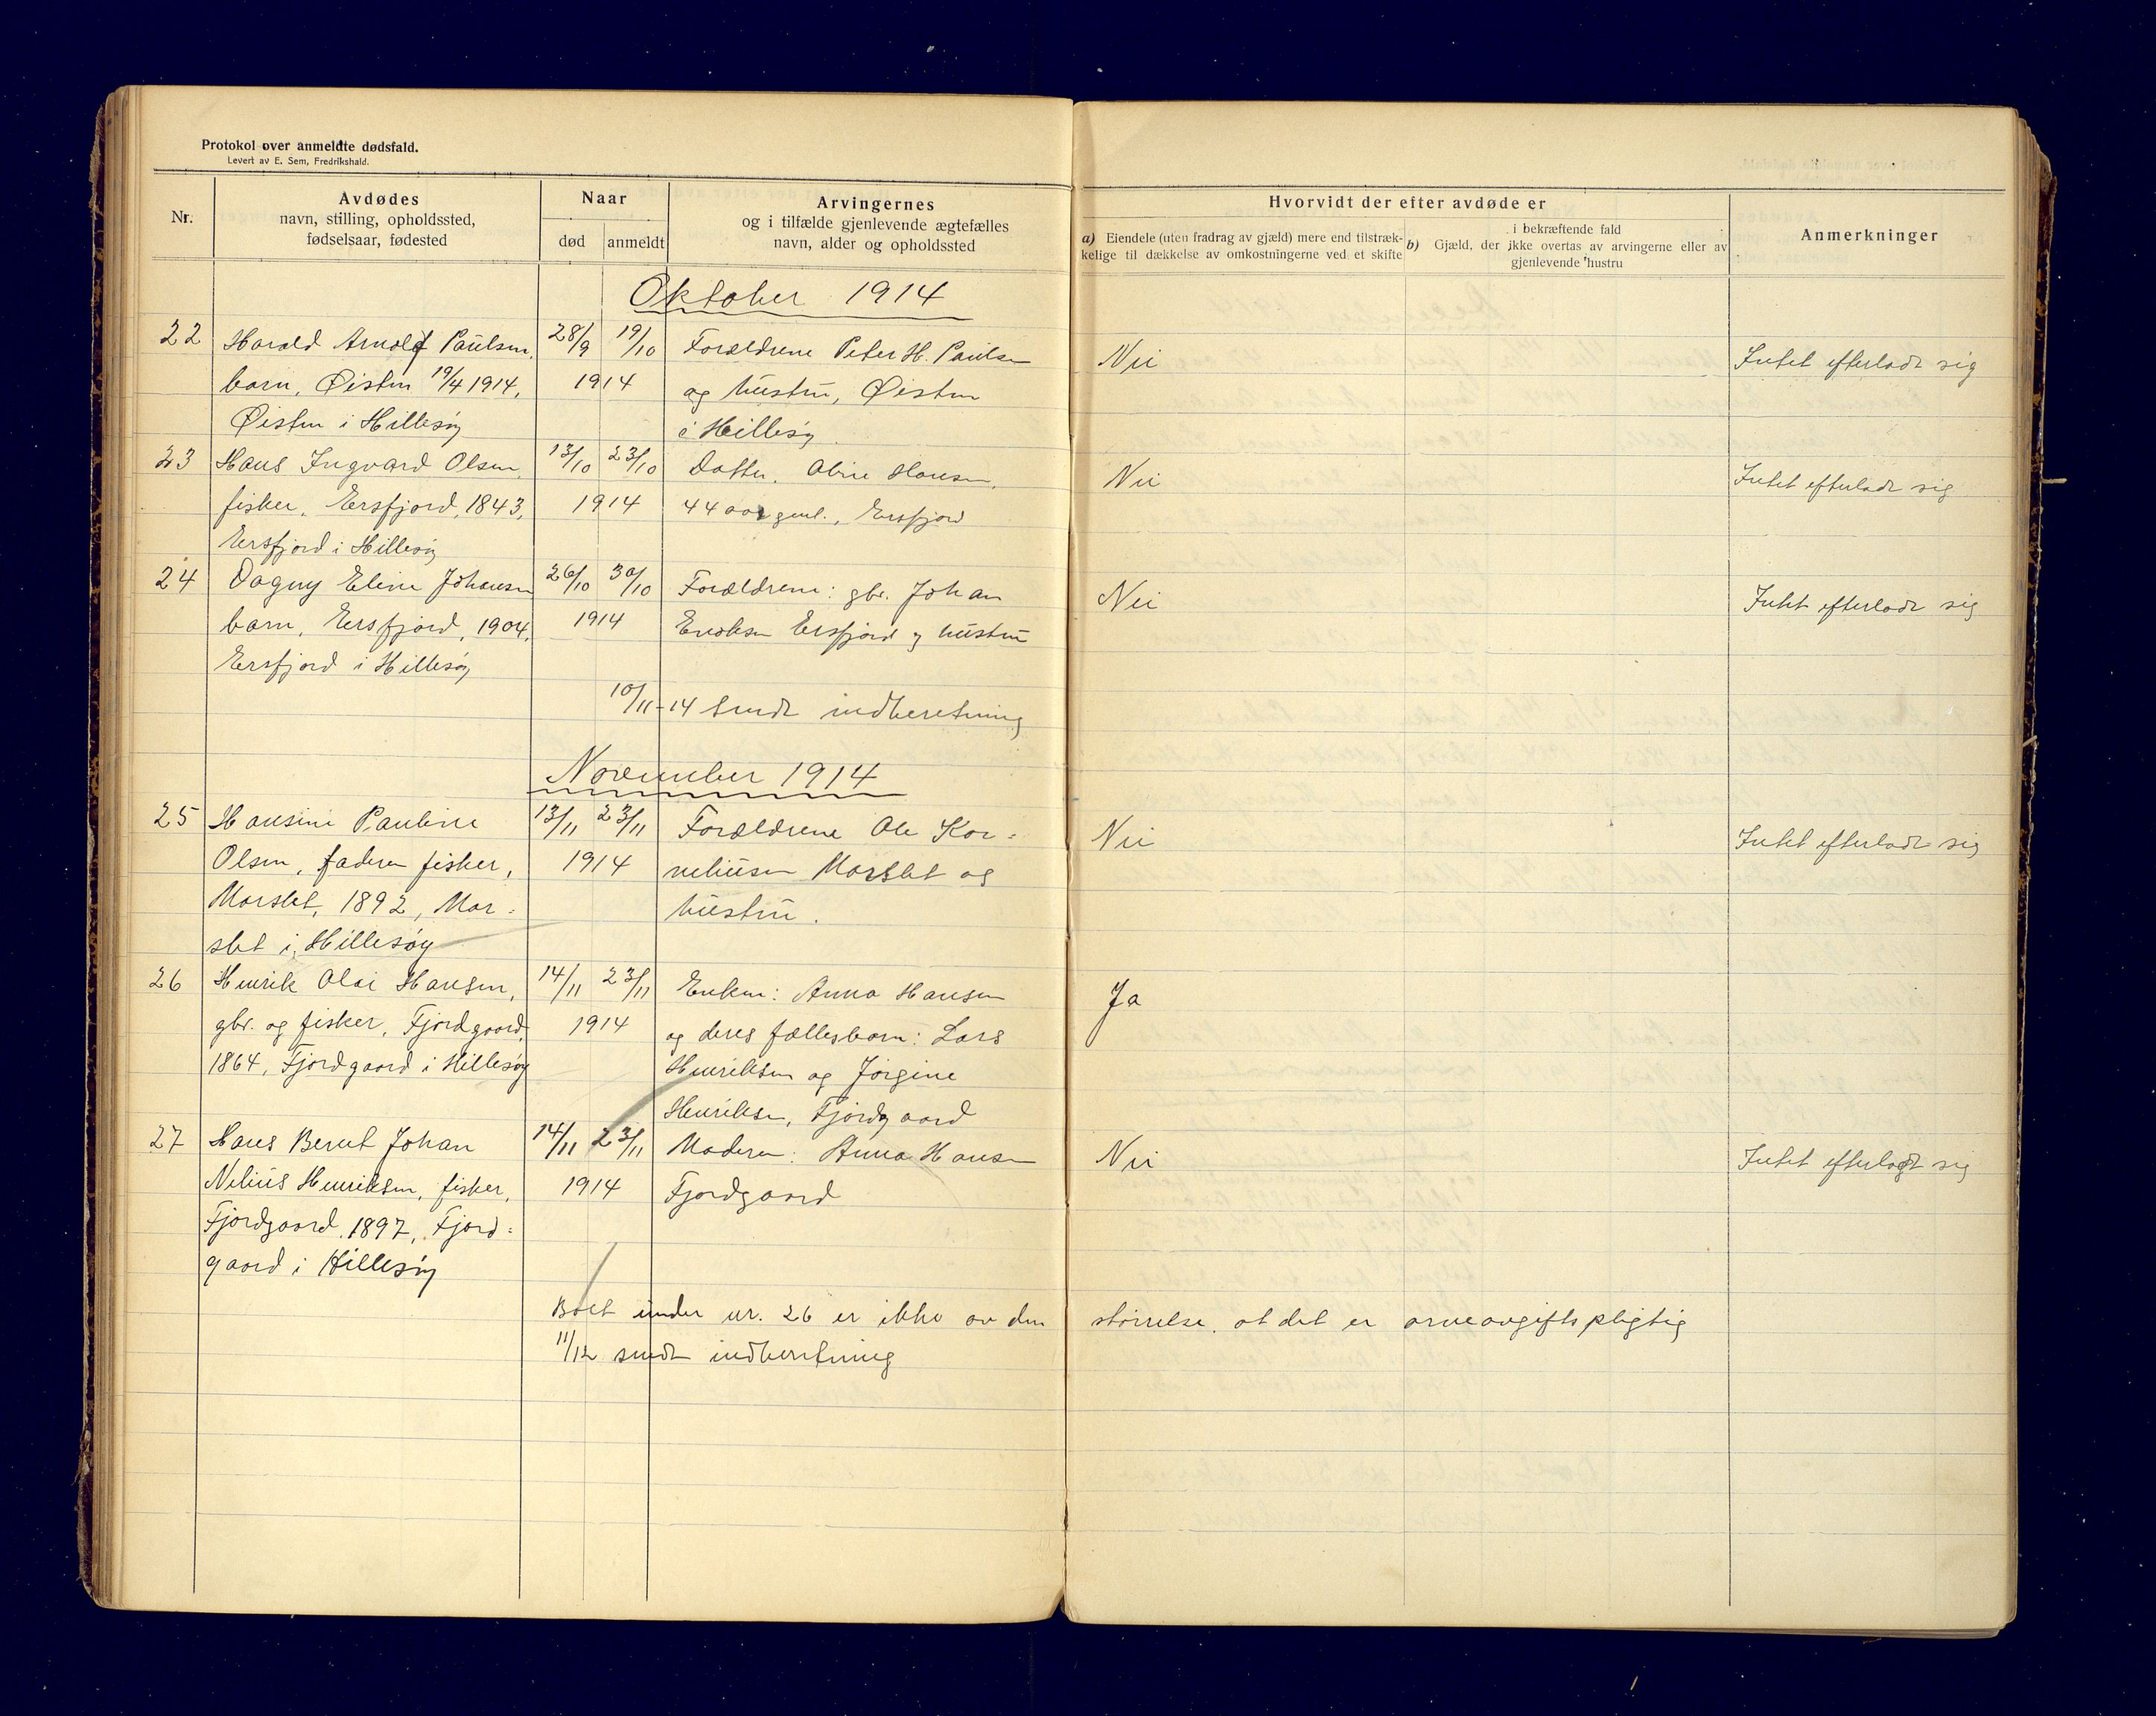 Protokol over anmeldte dødsfald.
Levert av E. Sem, Fredrikshald.
Nr.
Avdødes
navn, stilling, opholdssted,
fødselsaar, fødested
Naar
død
anmeldt
Arvingernes
og i tilfælde gjenlevende ægtefælles
navn, alder og opholdssted
Hvorvidt der efter avdøde er
a) Eiendele (uten fradrag av gjæld) mere end tilstræk-
kelige til dækkelse av omkostningerne ved et skifte
i bekræftende fald
b) Gjæld, der ikke overtas av arvingerne eller av
gjenlevende hustru
Anmerkninger
Oktober 1914
22 Harald Arnolf Paulsen, 28/9 19/10 Forældrene Peter H. Paulsen Nei Intet efterladt sig
barn, Øisten 19/4 1914, 1914 og hustru, Øisten
Øisten i Hillesøy i Hillesøy.
23 Hans Ingvard Olsen, 13/10 23/10 Datter, Oline Hansen, Nei Intet efterladt sig
fisker, Ersfjord, 1843, 1914 44 aar gml., Ersfjord
Ersfjord i Hillesøy
24 Dagny Eline Johansen 26/10 30/10 Forældrene: gbr. Johan Nei Intet efterladt sig
barn, Ersfjord, 1904, 1914 Eriksen Ersfjord og hustru
Ersfjord i Hillesøy
10/11-14 sendt indberetning
November 1914
25 Hansine Pauline 13/11 23/11 Forældrene Ole Kor= Nei Intet efterladt sig
Olsen, faderen fisker, 1914 neliusen Marslet og
Marslet, 1892, Mar= hustru.
slet i Hillesøy
26 Henrik Olai Hansen, 14/11 23/11 Enken: Anna Hansen Ja
gbr. og fisker, Fjordgaard, 1914 og deres fællesbarn: Lars
1864, Fjordgaard i Hillesøy Henriksen og Jørgine
Henriksen, Fjordgaard
27 Hans Bernt Johan 14/11 23/11 Moderen: Anna Hansen Nei Intet efterladt sig
Nelius Henriksen, fisker, 1914 Fjordgaard
Fjordgaard, 1897, Fjord=
gaard i Hillesøy
Boet under nr. 26 er ikke av den størrelse, at det er arveavgiftspligtig
11/12 sendt indberetning